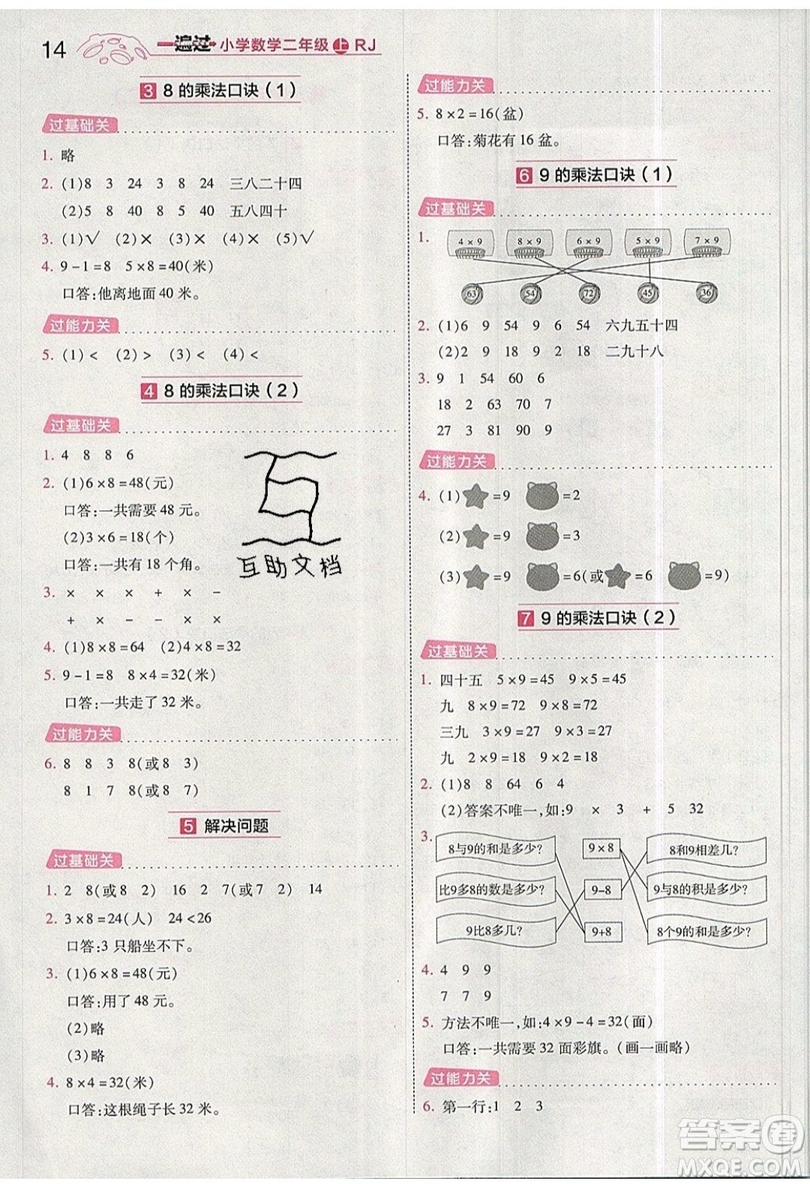 14 一遍过 小学数学二年级 上 RJ
3 8的乘法口诀（1）
过基础关
1. 略
2. (1)8 3 24 3 24 三八二十四
(2)5 8 40 8 40 五八四十
3. (1)√ (2)× (3)× (4)×
4. 9-1=8 5×8=40(米)
口答:他离地面 40 米。
过能力关
5. (1)< (2)> (3)< (4)<
4 8的乘法口诀（2）
过基础关
1. 4 8 8 6
2. (1)6×8=48(元)
口答:一共需要 48 元。
(2)3×6=18(个)
口答:一共有 18 个角。
3. × × + ×
+ × - -
4. (1)8×8=64 (2)4×8=32
5. 9-1=8 8×4=32(米)
口答:一共走了 32 米。
过能力关
6. 8 8 3 8(或 8 3)
8 1 7 8(或 8 7)
5 解决问题
过基础关
1. 2 8(或 8 2) 16 2 7(或 7 2) 14
2. 3×8=24(人) 24<26
口答:3 只船坐不下。
3. (1)6×8=48(元)
口答:用了 48 元。
(2)略
(3)略
4. 8×4=32(米)
口答:这根绳子长 32 米。
过能力关
5. 8×2=16(盆)
口答:菊花有 16 盆。
6 9的乘法口诀（1）
过基础关
1. 4×9 8×9 6×9 5×9 7×9
63 54 72 45 36
2. (1)6 9 54 9 6 54 六九五十四
(2)2 9 18 9 2 18 二九十八
3. 9 1 54 6 9 6
18 2 63 7 9 7
27 3 81 9 9 9
过能力关
4. (1) =9 =2
(2) =9 =3
(3) =9 =6(或 =6 =9)
7 9的乘法口诀（2）
过基础关
1. 四十五 5×9=45 9×5=45
九 8×9=72 9×8=72
三九 3×9=27 9×3=27
九 2×9=18 9×2=18
2. (1)8 8 64 6 4
(2)答案不唯一,如:9 × 3 + 5 32
3. 8与9的和是多少? 9×8 8和9相差几?
比9多8的数是多少? 9-8 9与8的积是多少?
9比8多几? 9+8 8个9的和是多少?
4. 4 9 9
7 7 9
5. 方法不唯一,如:4×9-4=32(面)
口答:一共需要 32 面彩旗。(画一画略)
过能力关
6. 第一行:1 2 3
互助文档
答案圈
MXQE.COM